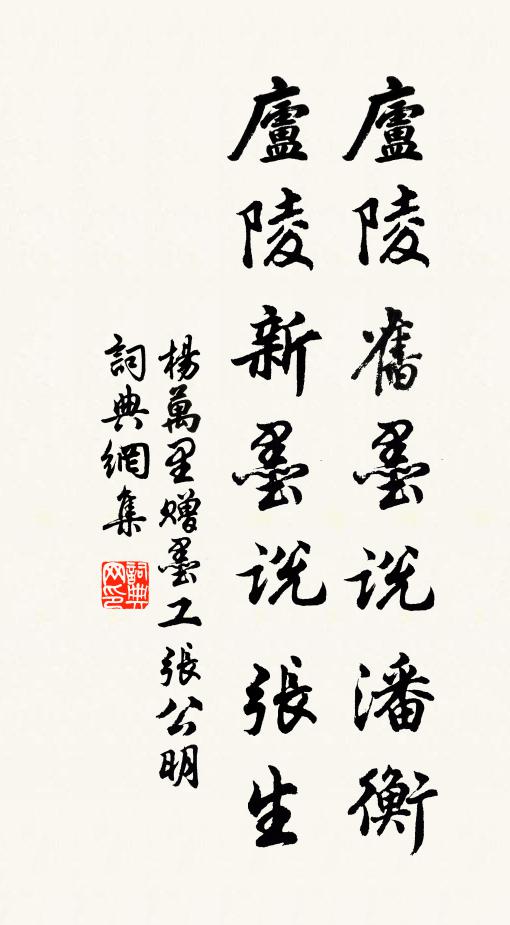 廬陵舊墨説潘衡
廬陵新墨説張生
楊萬里贈墨工張公明
詞典網集
詞典网印